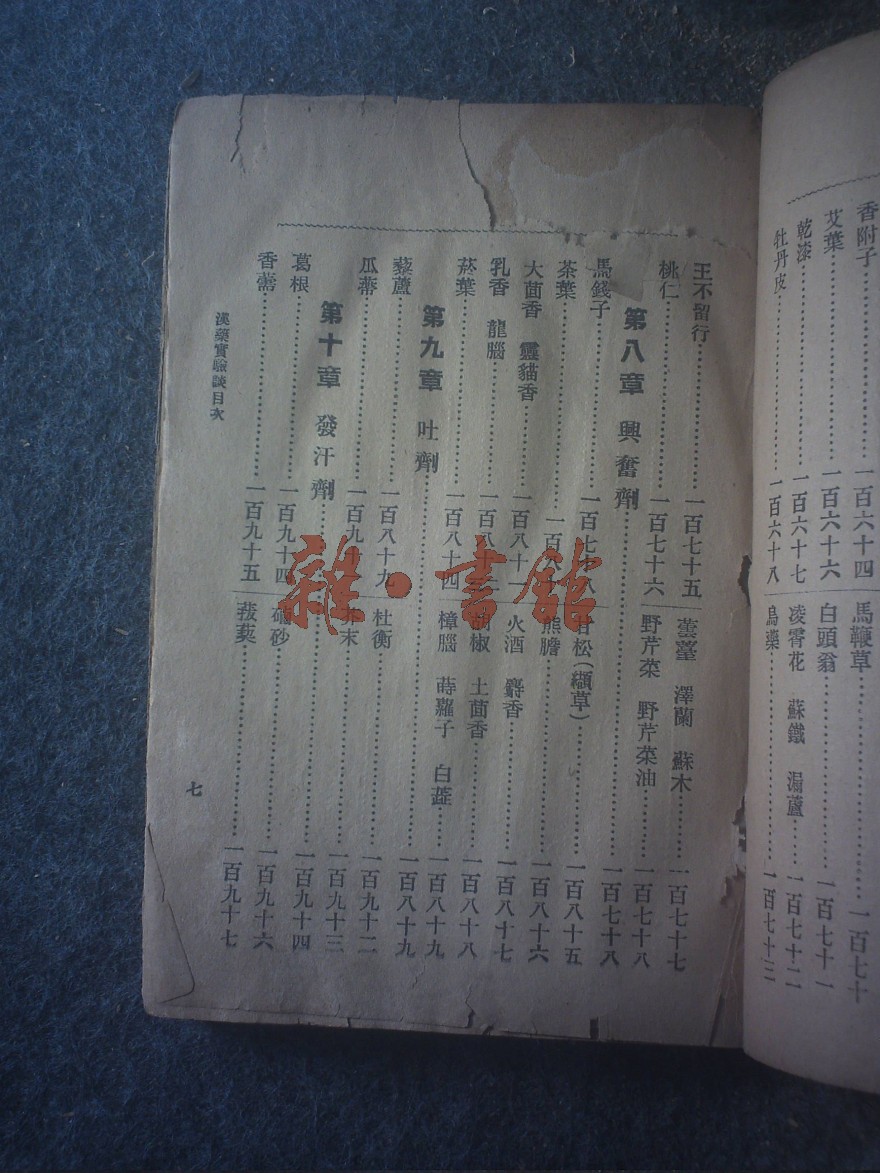 香附子……一百六十四 馬鞭草……一百七十
艾葉……一百六十六 白頭翁……一百七十一
乾漆……一百六十七 凌霄花 蘇鐵 漏蘆……一百七十二
牡丹皮……一百六十八 烏藥……一百七十三
王不留行……一百七十五 蕓薹 澤蘭 蘇木……一百七十七
桃仁……一百七十六 野芹菜 野芹菜油……一百七十八
第八章 興奮劑……一百七十八
馬錢子……一百七十八 甘松(纈草)……一百八十五
茶葉……一百八十 熊膽……一百八十六
大茴香 靈貓香……一百八十一 火酒 麝香……一百八十七
乳香 龍腦……一百八十 胡椒 土茴香……一百八十八
菸葉……一百八十四 樟腦 蒔蘿子 白……一百八十九
第九章 吐劑……一百八十九
藜蘆……一百八十九 杜衡……一百九十二
瓜蒂……一百九十 芥末……一百九十三
第十章 發汗劑……一百九十四
葛根……一百九十四 硇砂……一百九十六
香薷……一百九十五 菝葜……一百九十七
漢藥實驗談目次
七
雜·書館